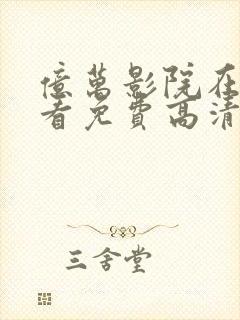 億萬影院在
看免費高清
三舍堂